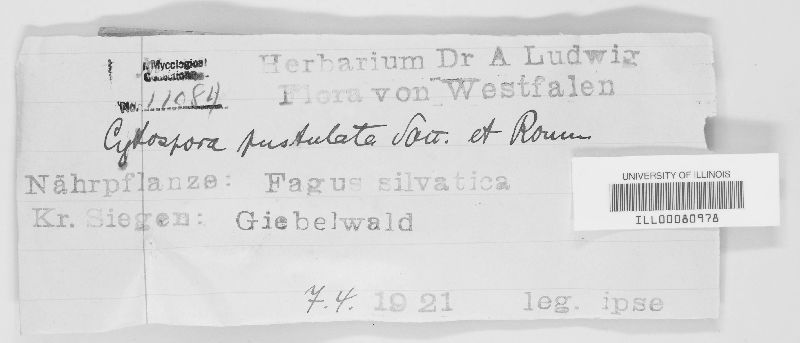 Mycological
Collections
Herbarium Dr A Ludwig
Flora von Westfalen
No. 11084
Cytospora pustulata Sacc. et Roum.
Nährpflanze: Fagus silvatica
Kr. Siegen: Giebelwald
7.4. 1921 leg. ipse
UNIVERSITY OF ILLINOIS
ILL00080978